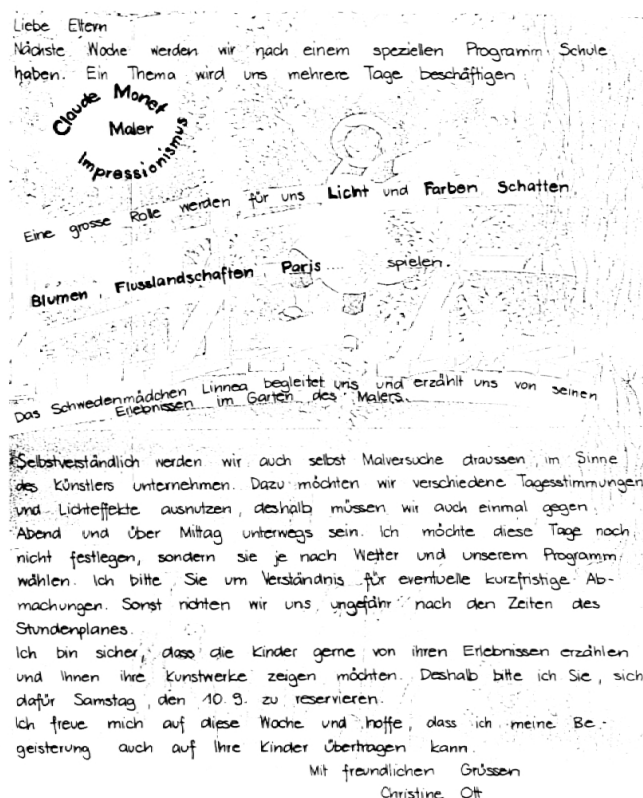 Liebe Eltern
Nächste Woche werden wir nach einem speziellen Programm Schule
haben. Ein Thema wird uns mehrere Tage beschäftigen
Claude Monet
Maler
Impressionismus
Eine grosse Rolle werden für uns Licht und Farben, Schatten,
Blumen, Flusslandschaften Paris.... spielen.
Das Schwedenmädchen Linnea begleitet uns und erzählt uns von seinen
Erlebnissen im Garten des Malers.
Selbstverständlich werden wir auch selbst Malversuche draussen, im Sinne
des Künstlers unternehmen. Dazu möchten wir verschiedene Tagesstimmungen
und Lichteffekte ausnutzen, deshalb müssen wir auch einmal gegen
Abend und über Mittag unterwegs sein. Ich möchte diese Tage noch
nicht festlegen, sondern sie je nach Wetter und unserem Programm
wählen. Ich bitte Sie um Verständnis für eventuelle kurzfristige Ab-
machungen. Sonst richten wir uns ungefähr nach den Zeiten des
Stundenplanes.
Ich bin sicher, dass die Kinder gerne von ihren Erlebnissen erzählen
und Ihnen ihre Kunstwerke zeigen möchten. Deshalb bitte ich Sie, sich
dafür Samstag, den 10.9. zu reservieren.
Ich freue mich auf diese Woche und hoffe, dass ich meine Be-
geisterung auch auf Ihre Kinder übertragen kann.
Mit freundlichen Grüssen
Christine Ott